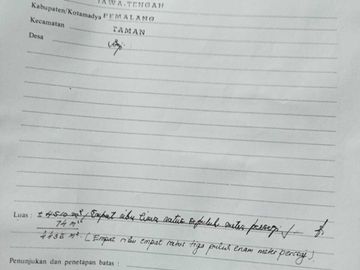 JAWA.TENGAH
Kabupaten/Kotamadya PEMALANG
Kecamatan TAMAN
Desa
Luas : ± 4510 m² / Empat ribu lima ratus sepuluh meter persegi /
74 m²
4436 m² ( Empat ribu empat ratus tiga puluh enam meter persegi )
Penunjukan dan penetapan batas :